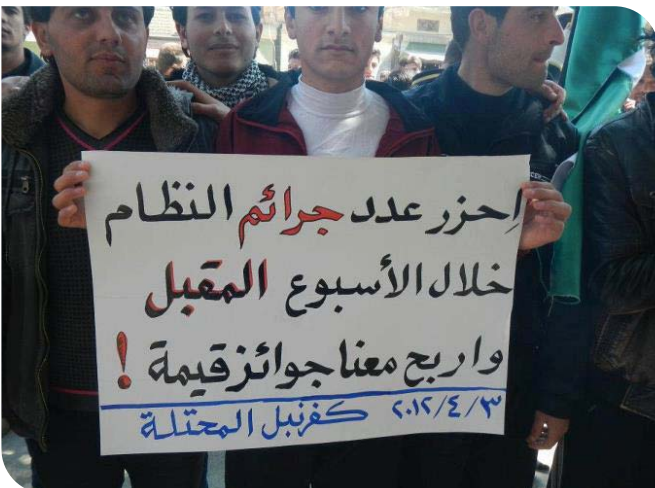 إحزر عدد جرائم النظام
خلال الأسبوع المقبل
واربح معنا جوائز قيمة !
٢٠١٢/٤/٣ كفرنبل المحتلة